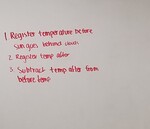 1. Register temperature before
sun goes behind clouds
2. Register temp after
3. Subtract temp after from
before temp